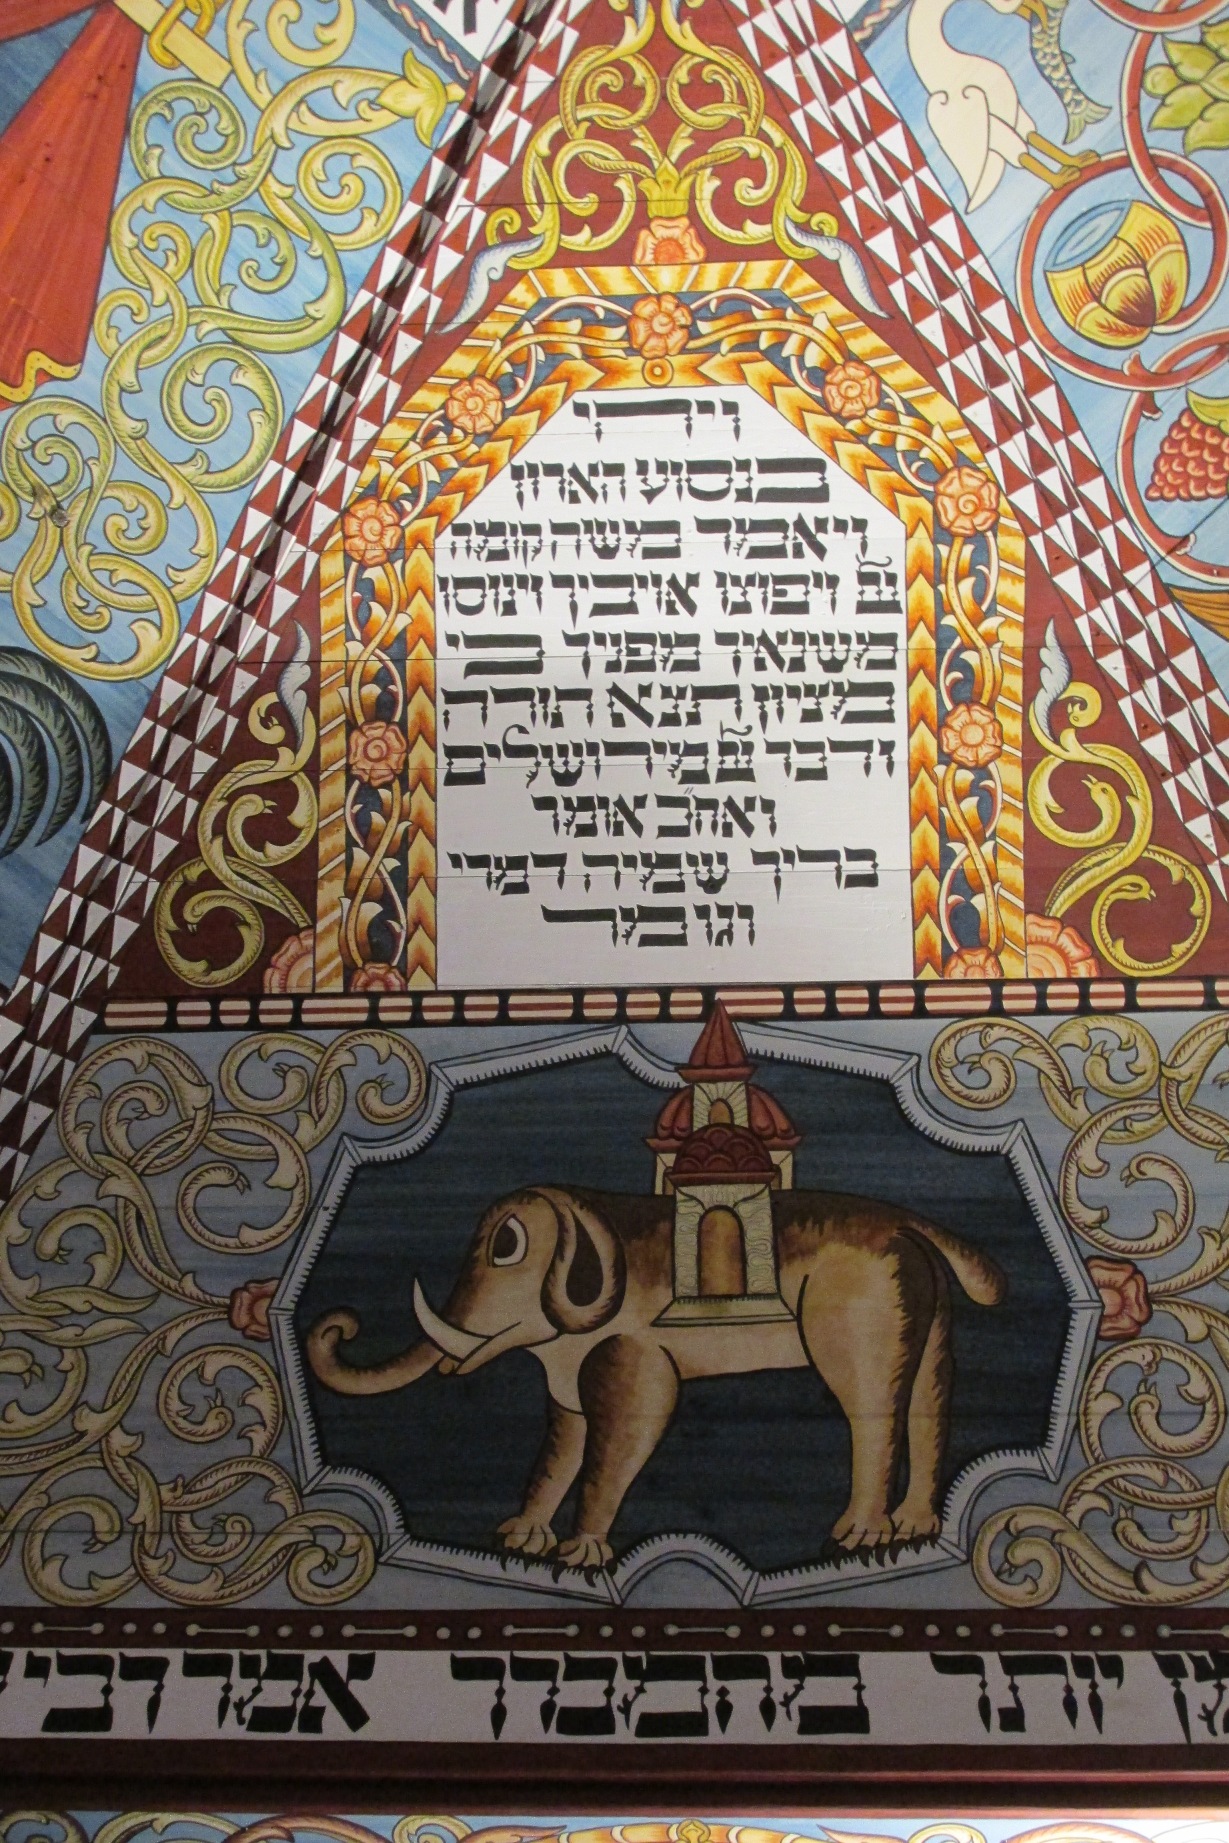 ויהי
בנסוע הארון
ויאמר משה קומה
יי ויפוצו אויביך וינוסו
משנאיך מפניך כי
מציון תצא תורה
ודבר יי מירושלים
ואח״כ אומר
בריך שמיה דמרי
יותר מהמברך אמר רבי